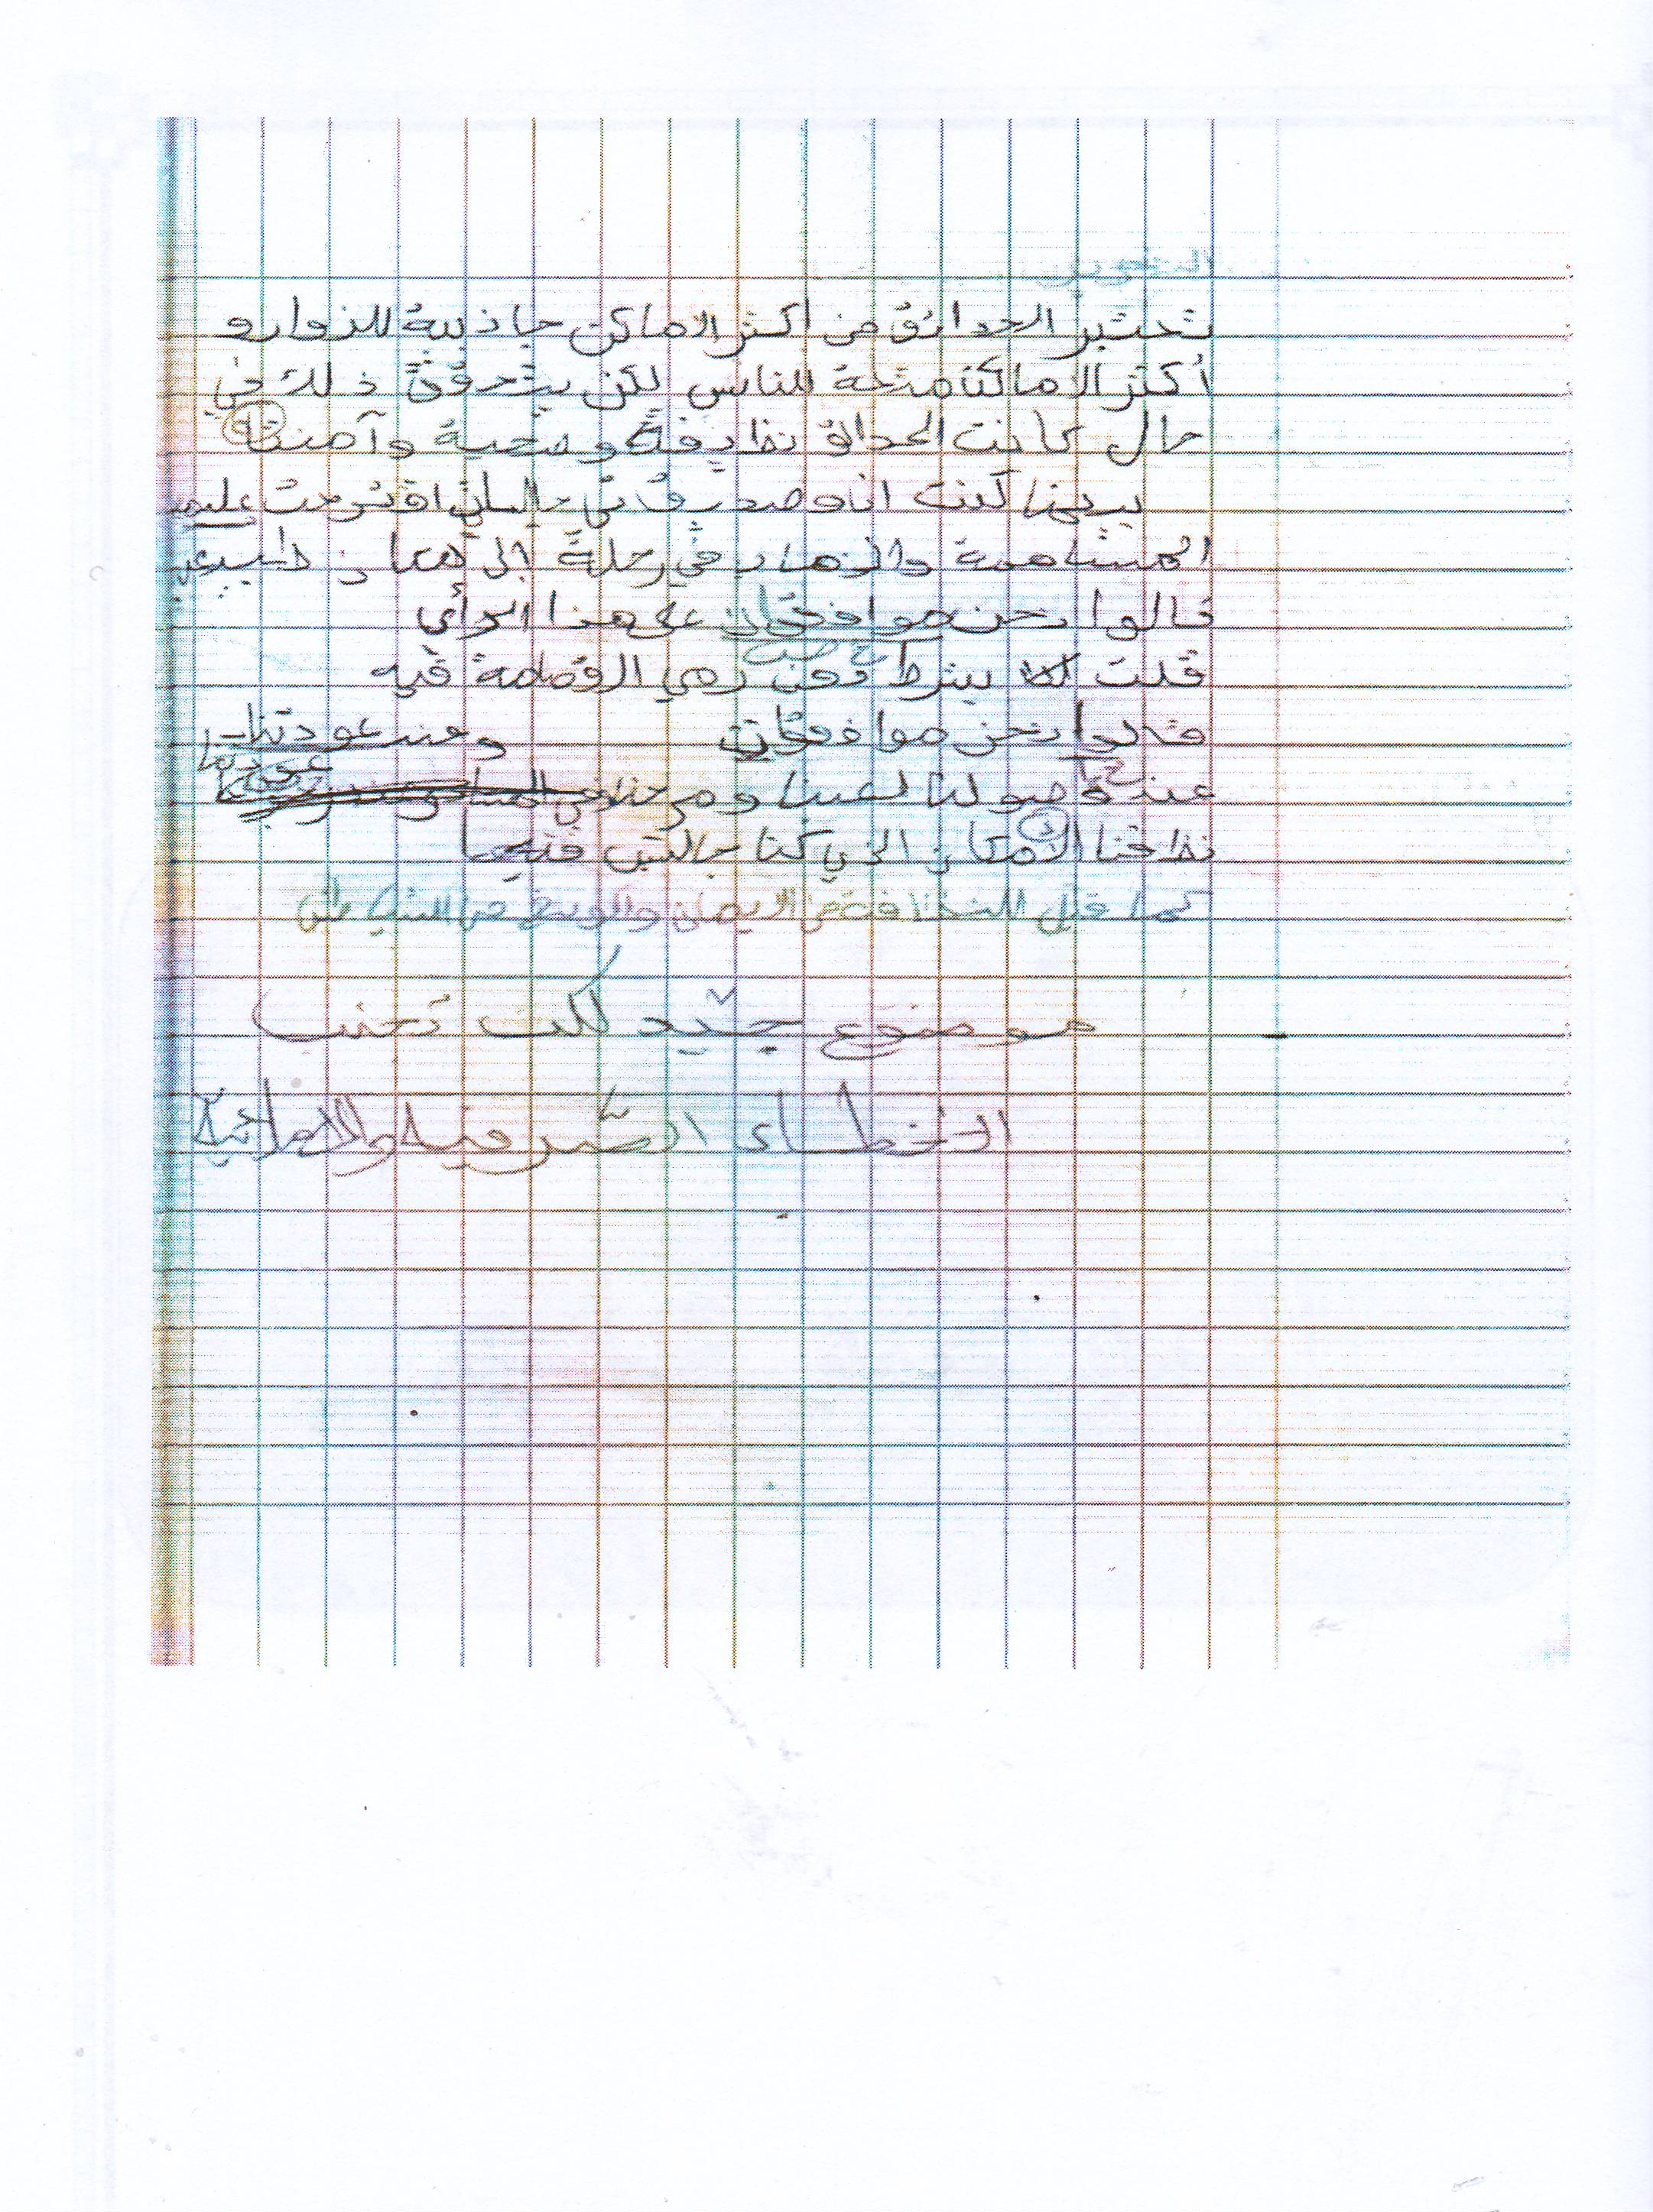 تعتبر الحدائق من اكثر الاماكن جاذبية للزوار و
أكثر الاماكن متعة للناس لكن يتحقق ذلك في
حال كانت الحدائق نظيفة وصحية وآمنة
بينما كنت انا وصديقاتي جالسات اقترحت عليهم
المساهمة والذهاب في رحلة إلى مكان طبيعي
قالوا نحن موافقان على هذا الرأي
قلت بشرط رمي القمامة فيه
قالوا نحن موافقان وعند عودتنا
عند وصولنا لعبنا و مرحنا في المساء عودتنا
نظفنا الامكان الذي كنا جالسن فيها
كما قيل النظافة من الايمان والوسخ من الشيطان
موضوع جيّد لكن تجنب
الاخطاء الصّرفية والاملائية